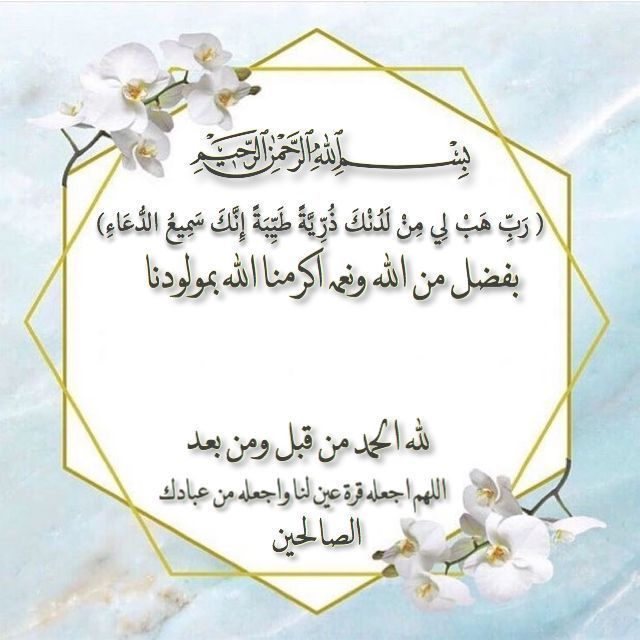 بِسْمِ اللهِ الرَّحْمٰنِ الرَّحِيْمِ
( رَبِّ هَبْ لِي مِنْ لَدُنْكَ ذُرِّيَّةً طَيِّبَةً إِنَّكَ سَمِيعُ الدُّعَاءِ)
بفضل من الله ونعمه اكرمنا الله بمولودنا
لله الحمد من قبل ومن بعد
اللهم اجعله قرة عين لنا واجعله من عبادك
الصالحين